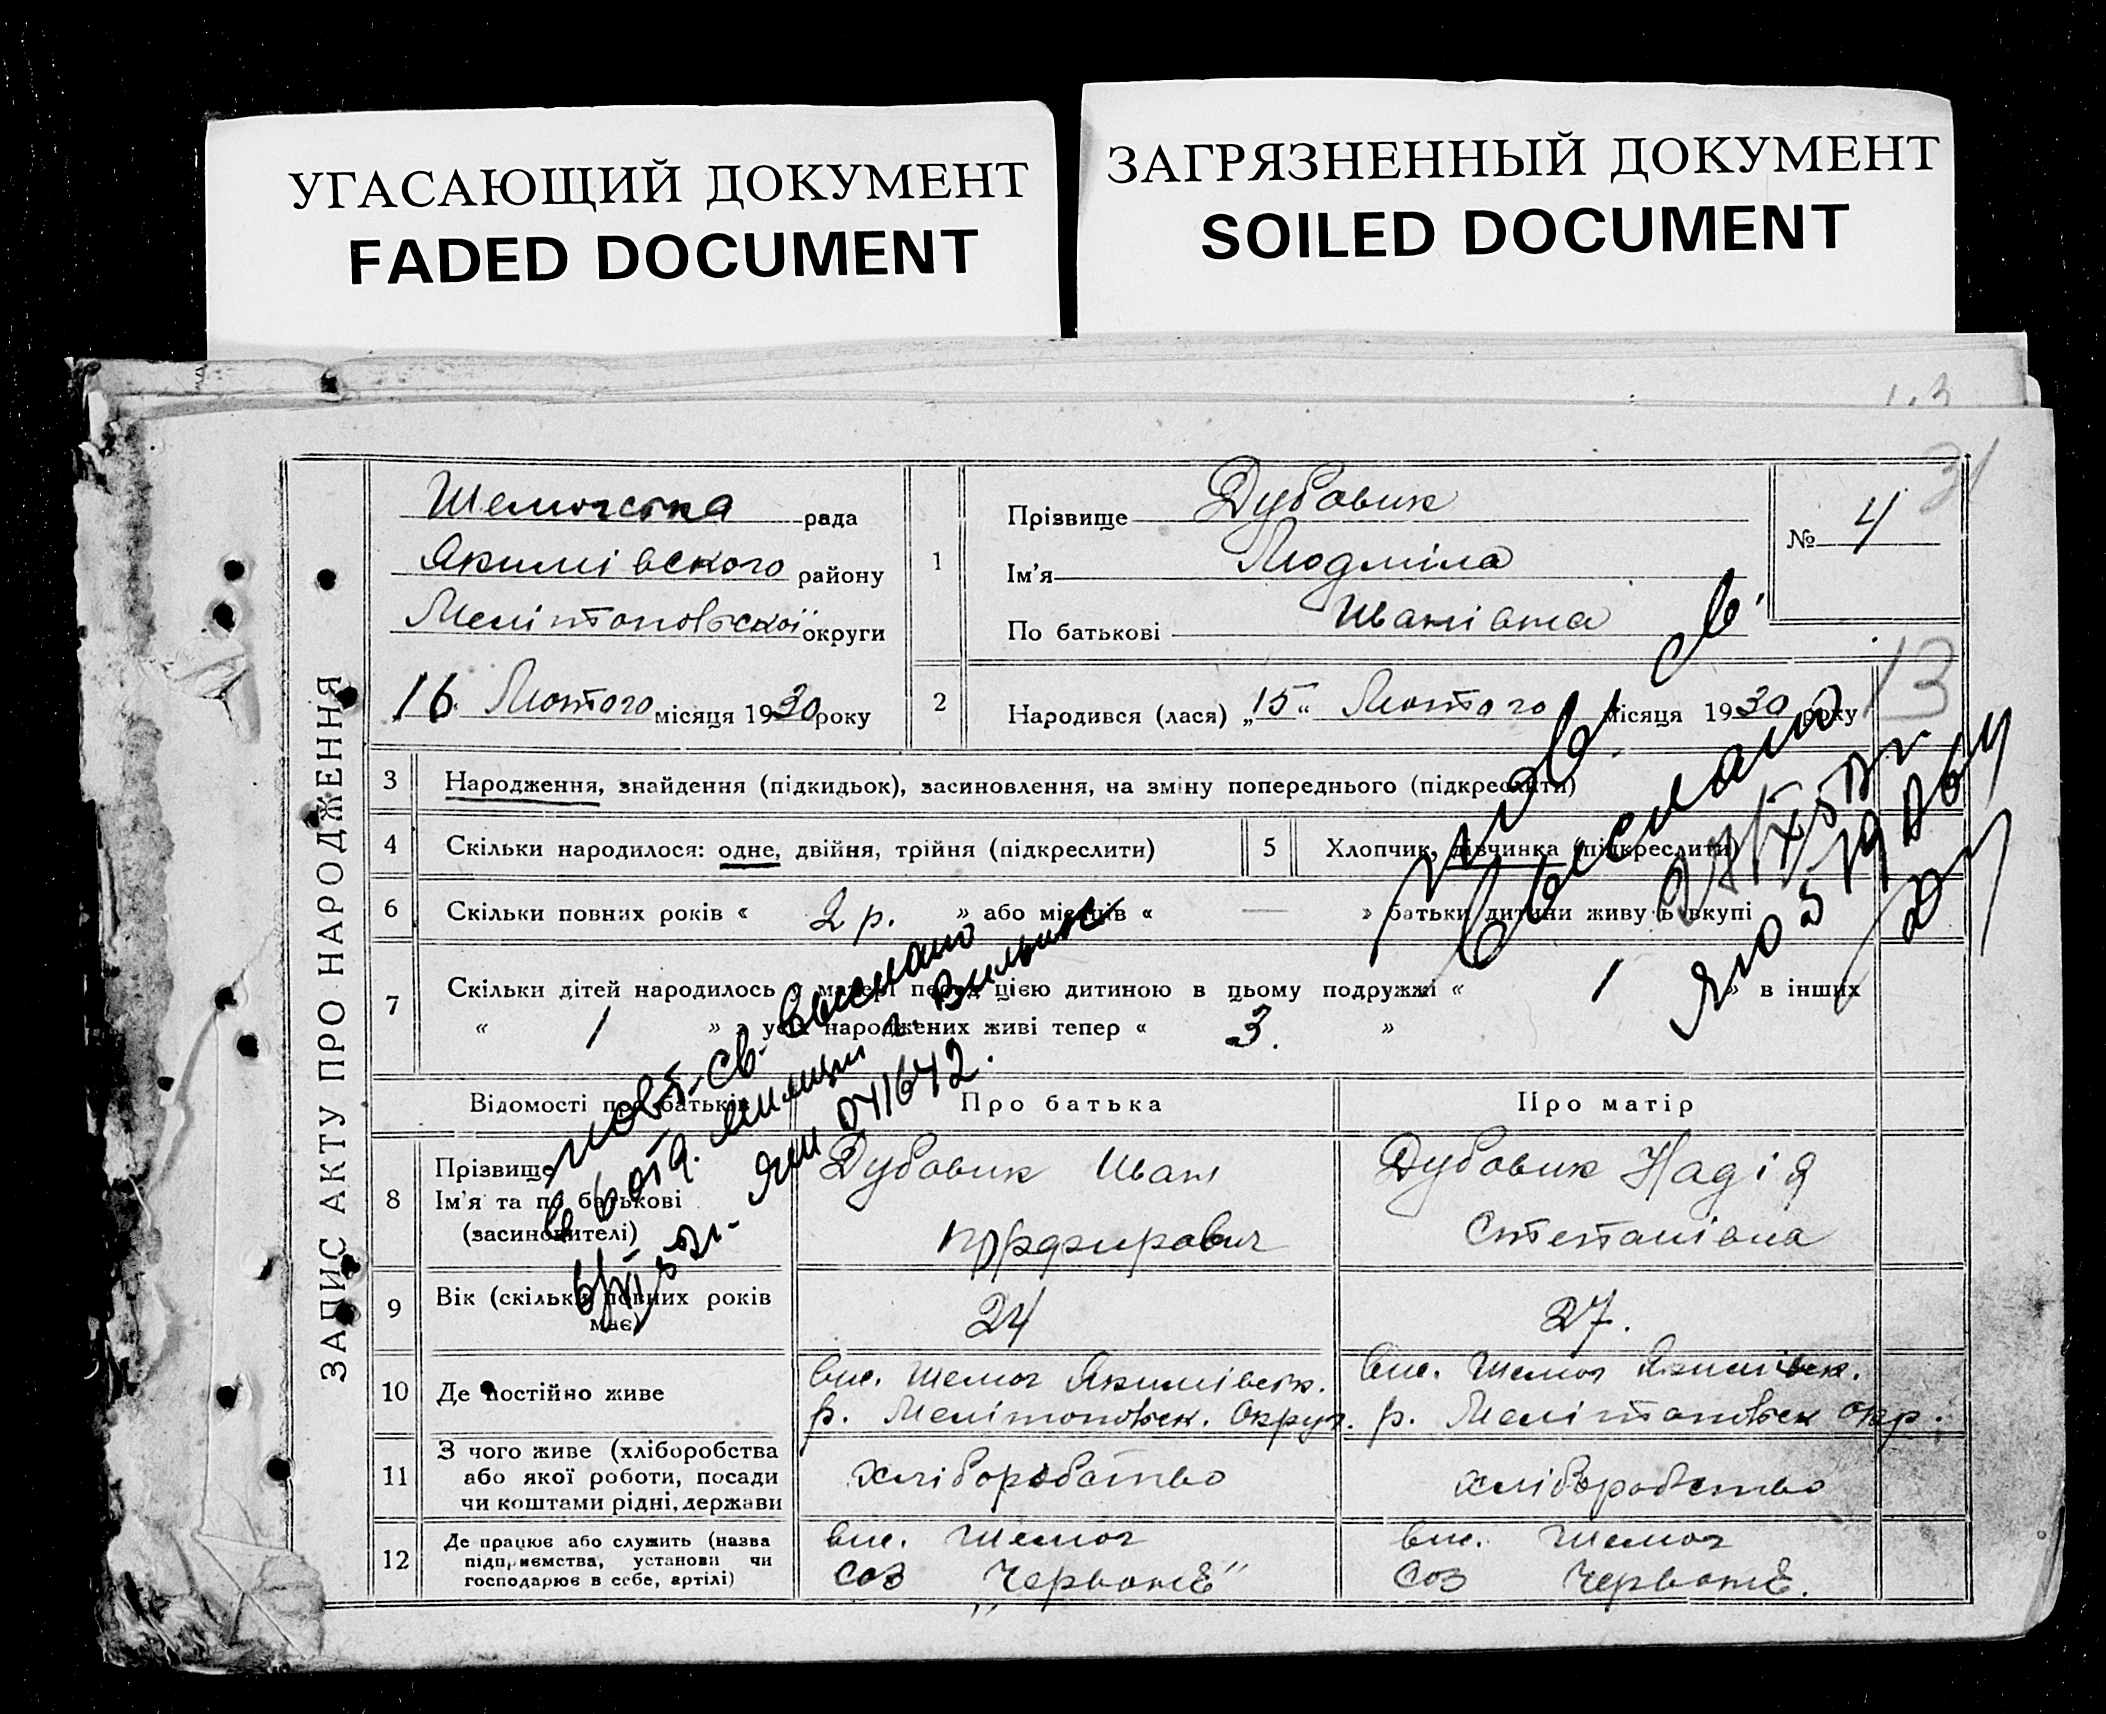 УГАСАЮЩИЙ ДОКУМЕНТ
FADED DOCUMENT
ЗАГРЯЗНЕННЫЙ ДОКУМЕНТ
SOILED DOCUMENT
31
13
ЗАПИС АКТУ ПРО НАРОДЖЕННЯ
Шемогська рада
Якимівського району
Мелітопольської округи
16 Лютого місяця 1930 року
1
Прізвище Дубовик
Ім'я Людміла
По батькові Іванівна
№ 4
2
Народився (лася) „15“ Лютого місяця 1930 року
3 Народження, знайдення (підкидьок), засиновлення, на зміну попереднього (підкреслити)
4 Скільки народилося: одне, двійня, трійня (підкреслити)
5 Хлопчик, дівчинка (підкреслити)
6 Скільки повних років « 2 р. » або місяців « — » батьки дитини живуть вкупі
7 Скільки дітей народилось у матері перед цією дитиною в цьому подружжі « 1 » в інших
« 1 » з усіх народжених живі тепер « 3. »
Відомості про батьків Про батька Про матір
8 Прізвище
Ім'я та по батькові
(засиновителі)
Дубовик Иван
Дубовик Надія
Степанівна
9 Вік (скільки повних років
має)
24
27.
10 Де постійно живе
вис. Шемог Якимівськ.
р. Мелітопольск. Округ.
вис. Шемог Якимівск.
р. Мелітопольск окр.
11 З чого живе (хліборобства
або якої роботи, посади
чи коштами рідні, держави
хліборобство
хліборобство
12 Де працює або служить (назва
підприємства, установи чи
господарює в себе, артілі)
вис. Шемог
Соз „Червоний"
вис. Шемог
Соз Червоний.
повт. св. выслано
в 6 отд. милиции г. Вильнюс
041642.
повт. св.
выслано